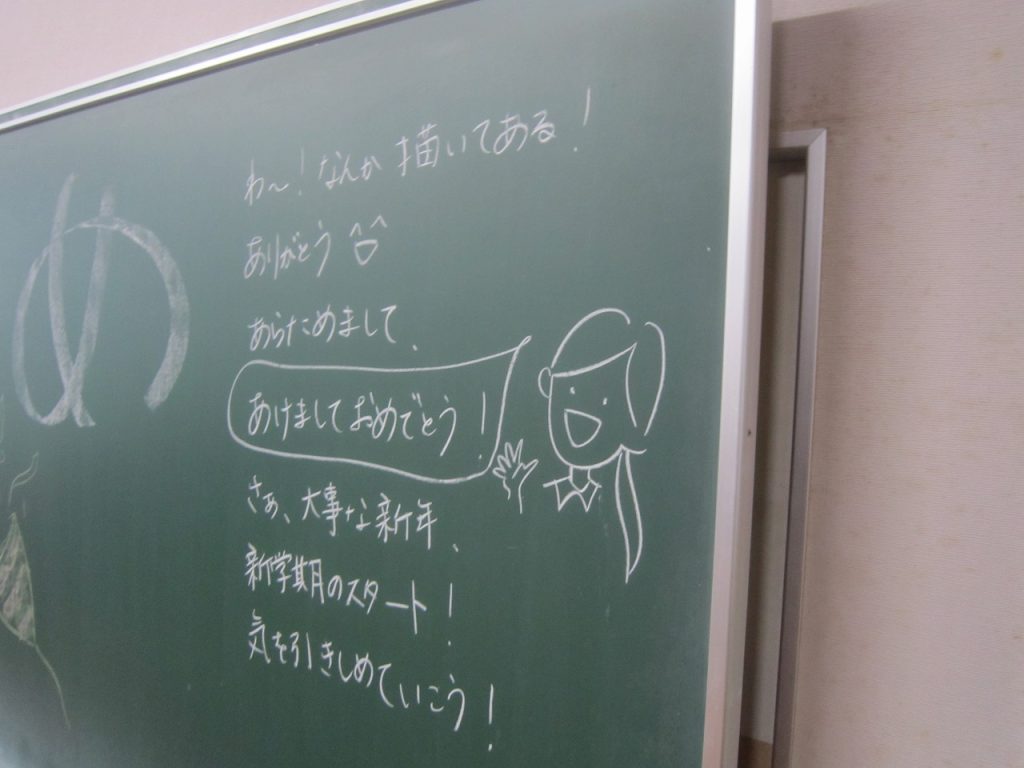 め
わ〜!なんか描いてある!
ありがとう
あらためまして、
あけましておめでとう!
さぁ、大事な新年、
新学期のスタート!
気を引きしめていこう!